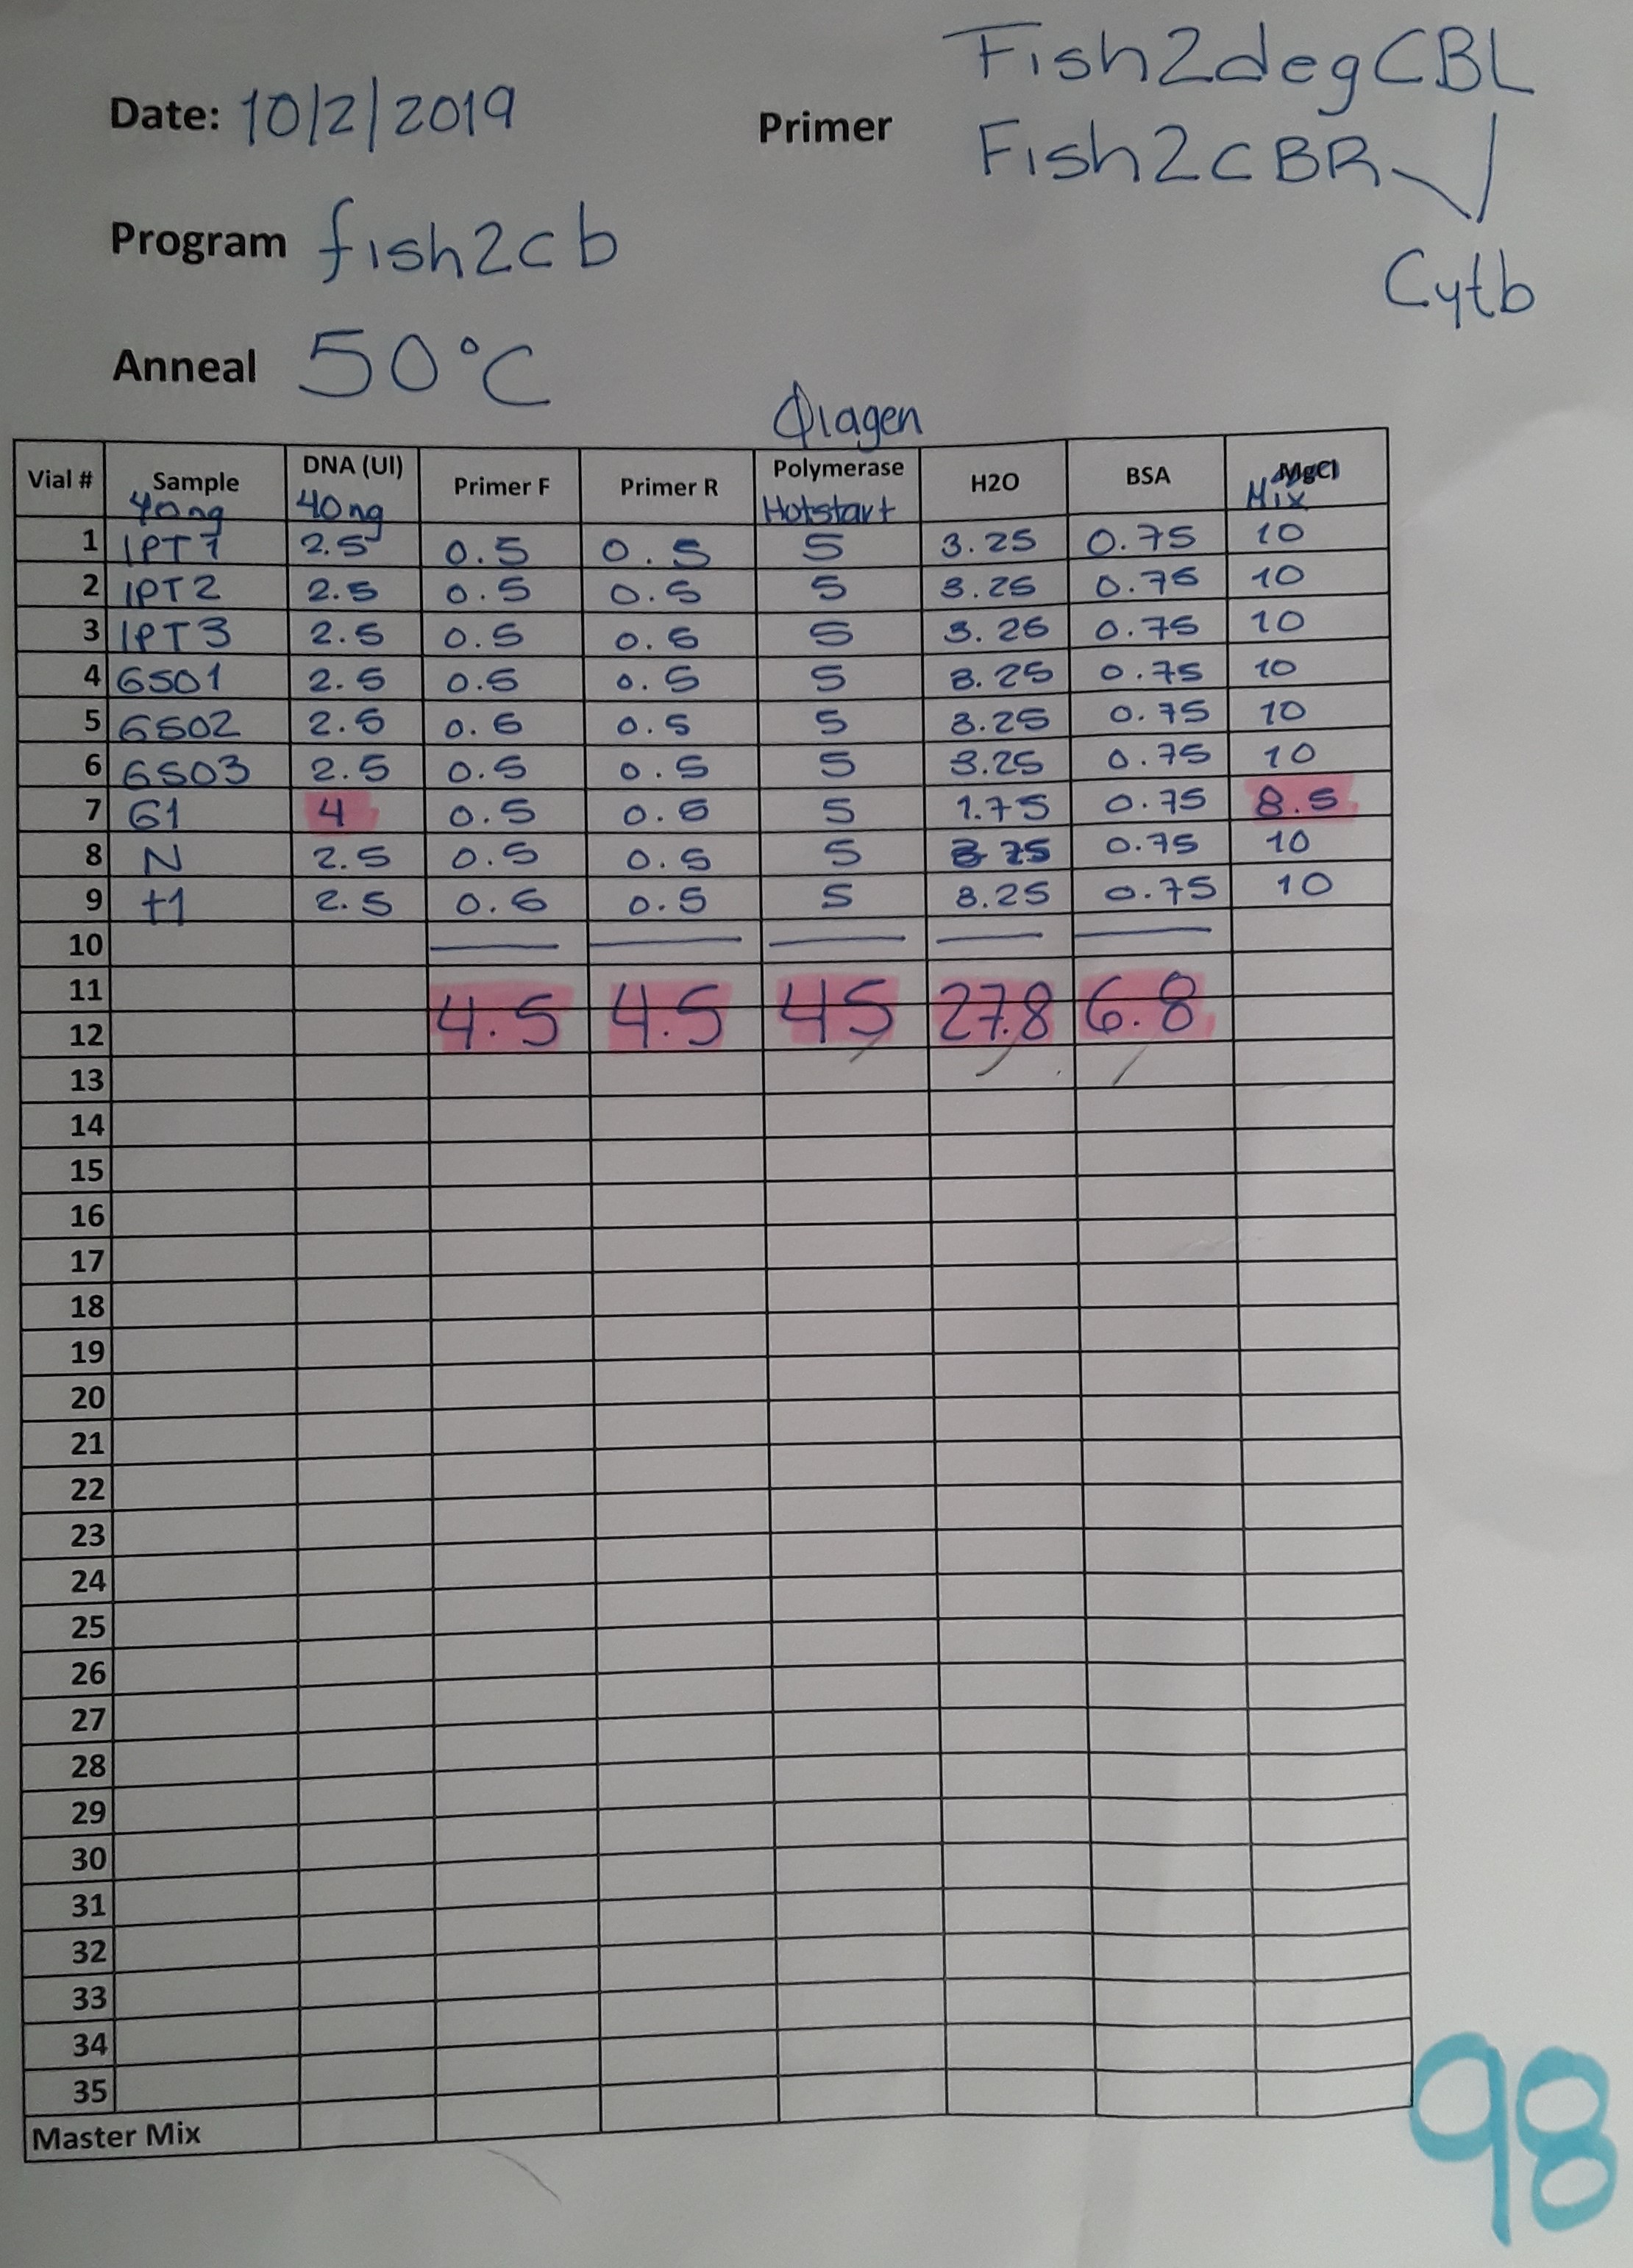 Date: 10/2/2019
Primer Fish2degCBL
Fish2CBR
Cytb
Program fish2cb
Anneal 50°C
Qiagen
Vial # Sample DNA (Ul) Primer F Primer R Polymerase H2O BSA MgCl
40ng 40ng Hotstart Mix
1 IPT1 2.5 0.5 0.5 5 3.25 0.75 10
2 IPT2 2.5 0.5 0.5 5 3.25 0.75 10
3 IPT3 2.5 0.5 0.5 5 3.25 0.75 10
4 GS01 2.5 0.5 0.5 5 3.25 0.75 10
5 GS02 2.5 0.5 0.5 5 3.25 0.75 10
6 GS03 2.5 0.5 0.5 5 3.25 0.75 10
7 G1 4 0.5 0.5 5 1.75 0.75 8.5
8 N 2.5 0.5 0.5 5 0.75 10
9 +1 2.5 0.5 0.5 5 3.25 0.75 10
10
11
12 4.5 4.5 45 27.8 6.8
13
14
15
16
17
18
19
20
21
22
23
24
25
26
27
28
29
30
31
32
33
34
35
Master Mix
98